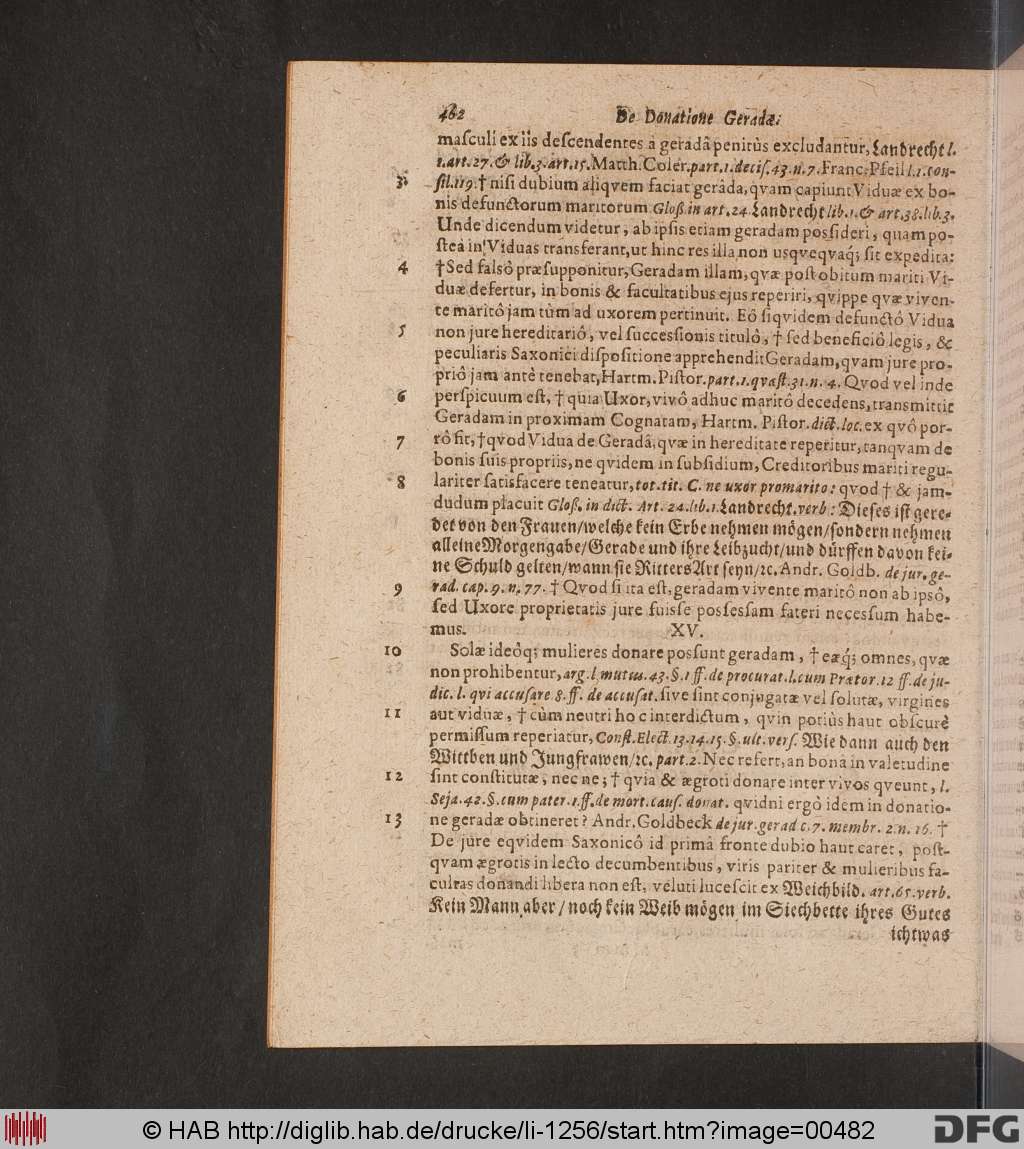 462 De Donatione Geradæ:
masculi ex iis descendentes à geradâ penitùs excludantur, Landrecht l.
1. art. 27. & lib. 3. art. 15. Matth. Coler. part. 1. decis. 43. n. 7. Franc. Pfeil l. 1. con-
3 sil. 119. † nisi dubium aliqvem faciat gerâda, qvam capiunt Viduæ ex bo-
nis defunctorum maritorum Gloß. in art. 24. Landrecht lib. 1. & art. 38. lib. 3.
Unde dicendum videtur, ab ipsis etiam geradam possideri, quam po-
steà in Viduas transferant, ut hinc res illa non usqveqvaq́; sit expedita:
4 † Sed falsô præsupponitur, Geradam illam, qvæ post obitum mariti Vi-
duæ defertur, in bonis & facultatibus ejus reperiri, qvippe qvæ viven-
te maritô jam tùm ad uxorem pertinuit. Eô siqvidem defunctô Vidua
5 non jure hereditariô, vel successionis titulô, † sed beneficiô legis, &
peculiaris Saxonici dispositione apprehendit Geradam, qvam jure pro-
priô jam antè tenebat, Hartm. Pistor. part. 1. qvæst. 31. n. 4. Qvod vel inde
6 perspicuum est, † quia Uxor, vivô adhuc maritô decedens, transmittit
Geradam in proximam Cognatam, Hartm. Pistor. dict. loc. ex qvô por-
7 rô sit, † qvod Vidua de Geradâ, qvæ in hereditate reperitur, tanqvam de
bonis suis propriis, ne qvidem in subsidium, Creditoribus mariti regu-
8 lariter satisfacere teneatur, tot. tit. C. ne uxor pro marito: qvod † & jam-
dudum placuit Gloß. in dict. Art. 24. lib. 1. Landrecht. verb: Dieses ist gere-
det von den Frauen/ welche kein Erbe nehmen mögen/ sondern nehmen
alleine Morgengabe/ Gerade und ihre Leibzucht/ und dürffen davon kei-
ne Schuld gelten/ wann sie Ritters Art seyn/ ⁊c. Andr. Goldb. de jur. ge-
9 rad. cap. 9. n. 77. † Qvod si ita est, geradam vivente maritô non ab ipsô,
sed Uxore proprietatis jure fuisse possessam fateri necessum habe-
mus. XV.
10 Solæ ideòq; mulieres donare possunt geradam, † eæq́; omnes, qvæ
non prohibentur, arg. l. mutus. 43. §. 1 ff. de procurat. l. cum Prætor. 12 ff. de ju-
dic. l. qvi accusare 8. ff. de accusat. sive sint conjugatæ vel solutæ, virgines
11 aut viduæ, † cùm neutri hoc interdictum, qvin potiùs haut obscurè
permissum reperiatur, Const. Elect. 13. 14. 15. §. ult. vers. Wie dann auch den
Wittben und Jungfrawen/ ⁊c. part. 2. Nec refert, an bonâ in valetudine
12 sint constitutæ, nec ne; † qvia & ægroti donare inter vivos qveunt, l.
Seja. 42. §. cum pater. 1. ff. de mort. caus. donat. qvidni ergò idem in donatio-
13 ne geradæ obtineret? Andr. Goldbeck de jur. gerad c. 7. membr. 2. n. 16. †
De jure eqvidem Saxonicô id primâ fronte dubio haut caret, post-
qvam ægrotis in lecto decumbentibus, viris pariter & mulieribus fa-
cultas donandi libera non est, veluti lucescit ex Weichbild. art. 65. verb.
Kein Mann aber/ noch kein Weib mögen im Siechbette ihres Gutes
ichtwas
© HAB http://diglib.hab.de/drucke/li-1256/start.htm?image=00482
DFG